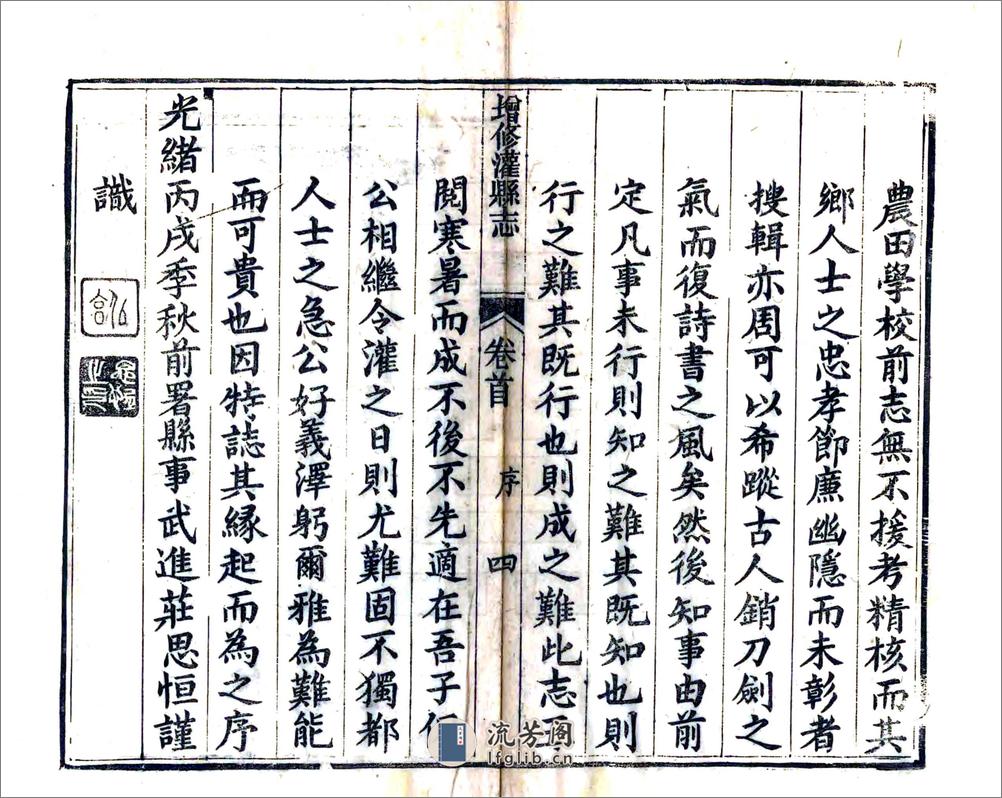 農田學校前志無不援考精核而其
鄉人士之忠孝節廉幽隱而未彰者
搜輯亦周可以希蹤古人銷刀劍之
氣而復詩書之風矣然後知事由前
定凡事未行則知之難其既知也則
行之難其既行也則成之難此志
增修灌縣志
卷首
序
四
閱寒暑而成不後不先適在吾子
公相繼令灌之日則尤難固不獨都
人士之急公好義澤躬爾雅為難能
而可貴也因特誌其緣起而為之序
光緒丙戌季秋前署縣事武進莊思恒謹
識
流芳阁
lfglib.cn